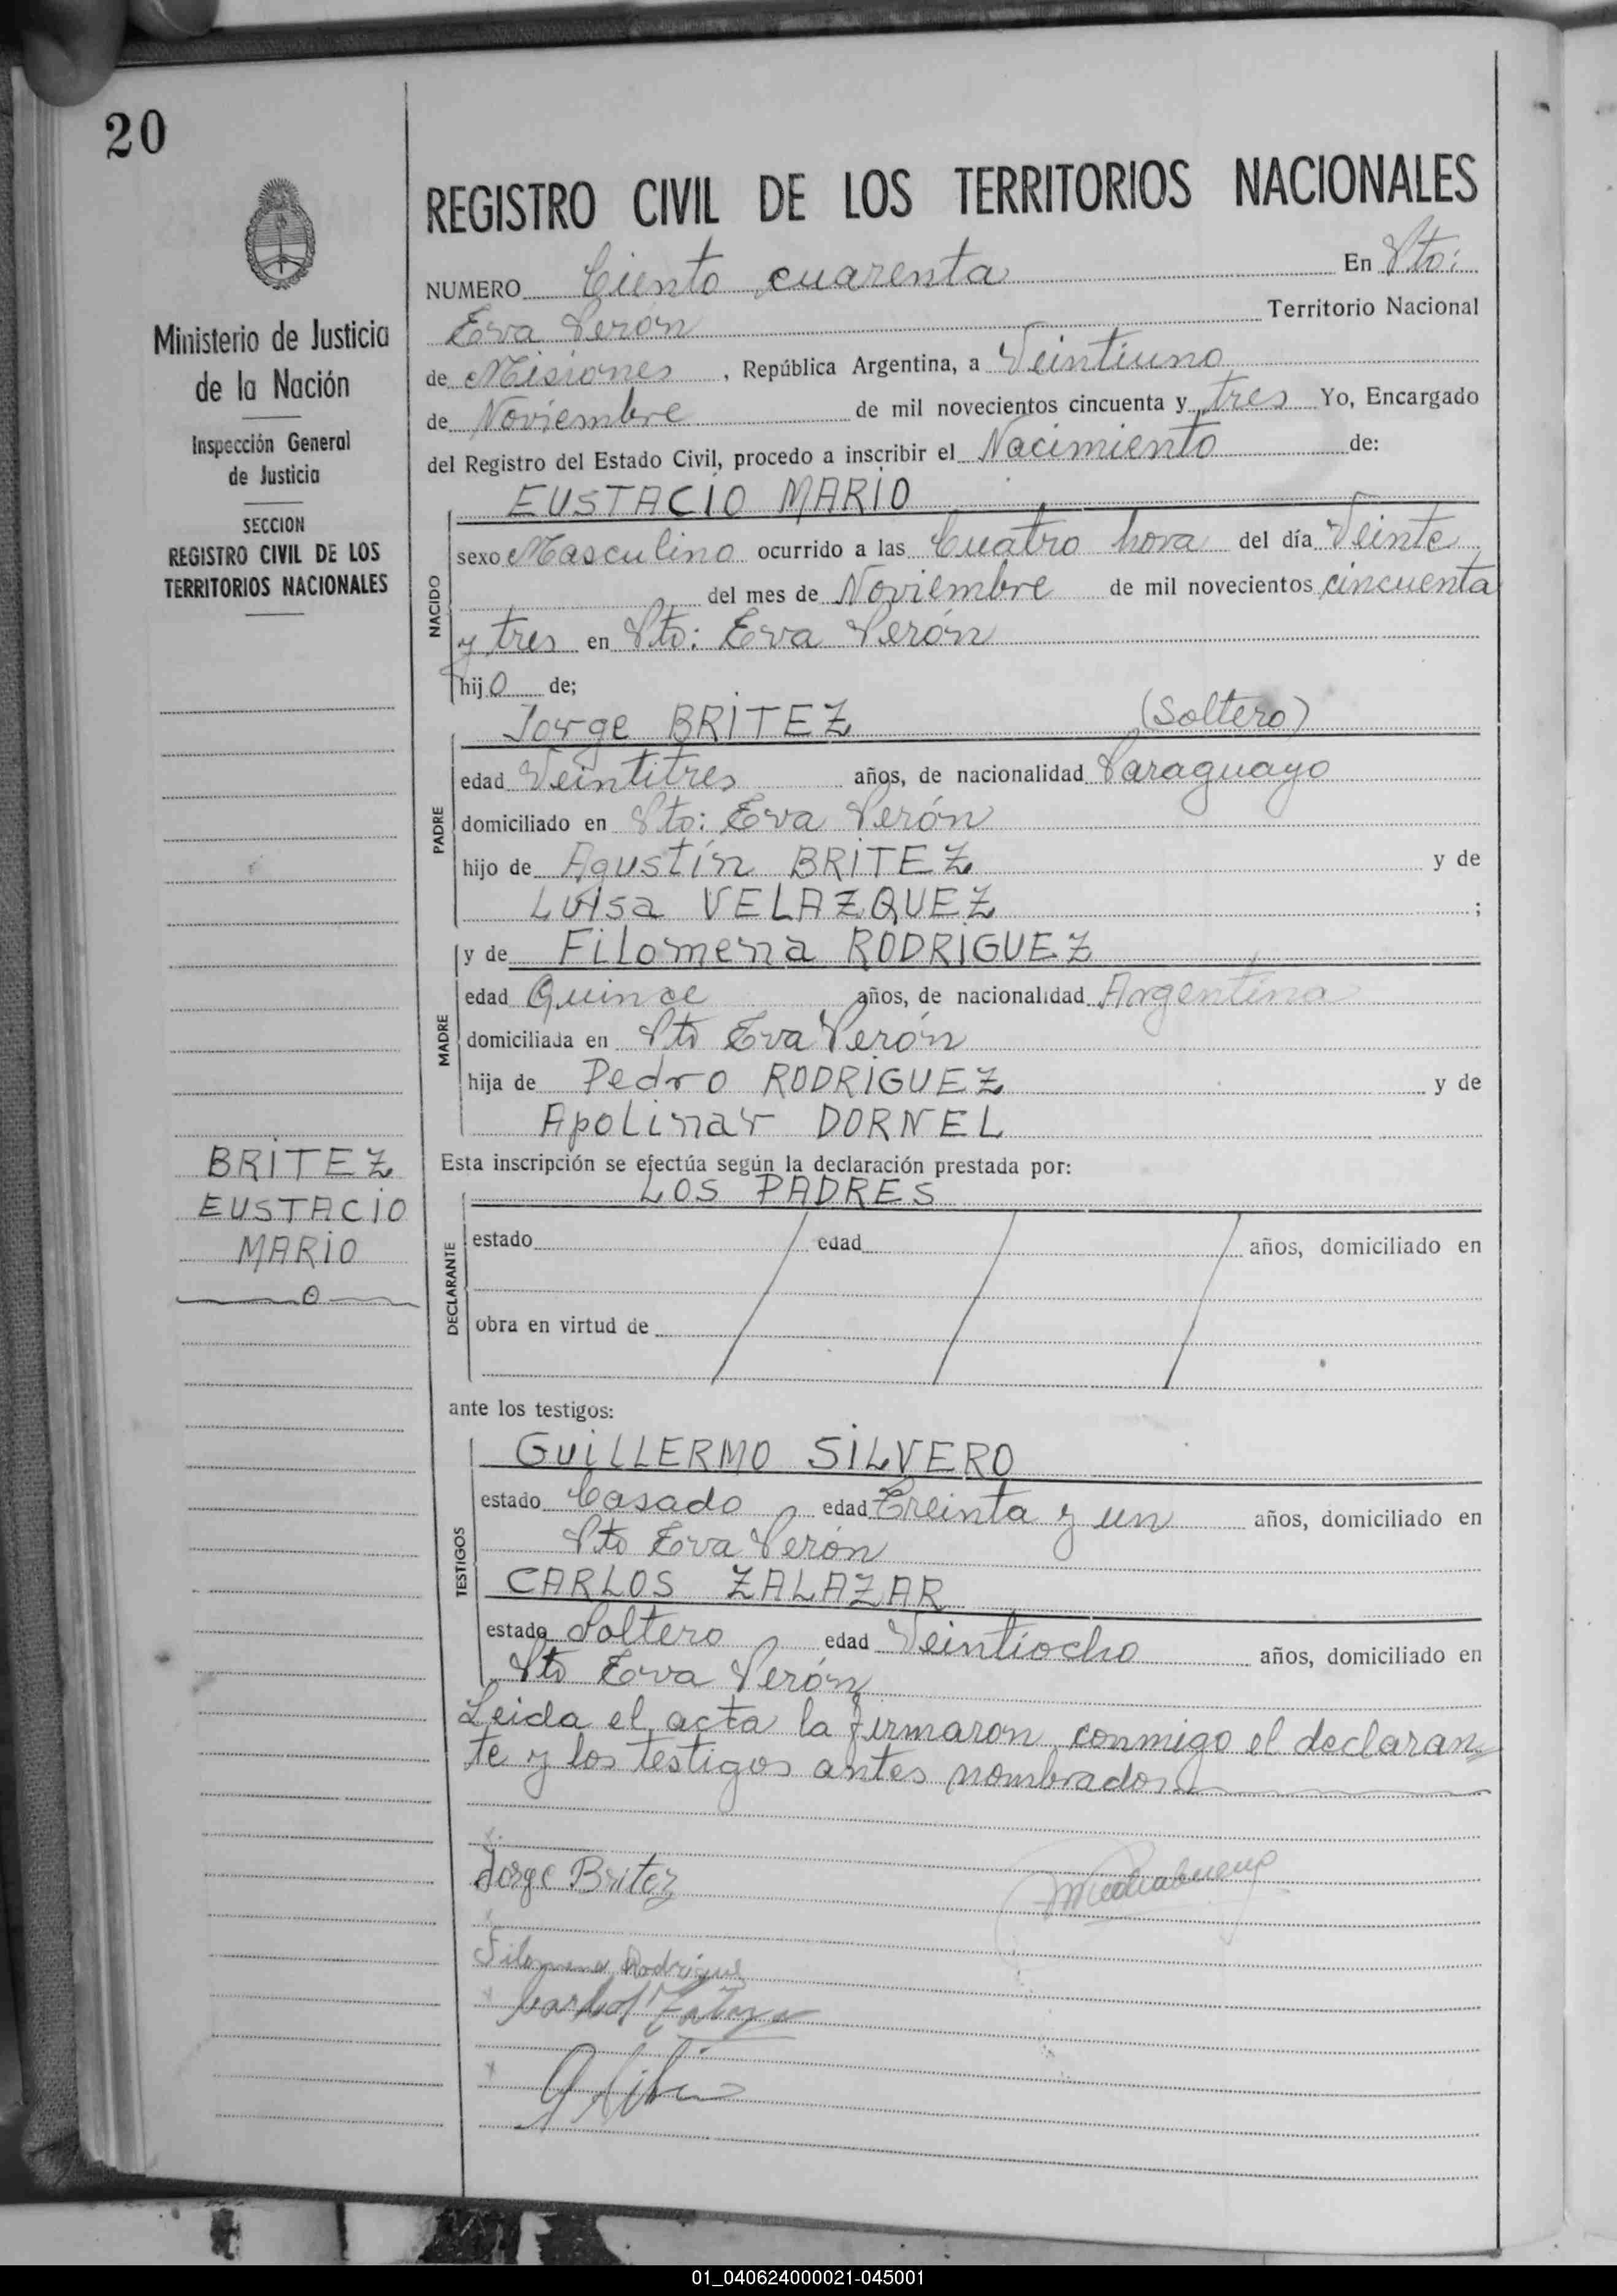 20
Ministerio de Justicia
de la Nación
Inspección General
de Justicia
SECCION
REGISTRO CIVIL DE LOS
TERRITORIOS NACIONALES
BRITEZ
EUSTACIO
MARIO
REGISTRO CIVIL DE LOS TERRITORIOS NACIONALES
NUMERO Ciento cuarenta En Pto:
Eva Perón Territorio Nacional
de Misiones, República Argentina, a Veintiuno
de Noviembre de mil novecientos cincuenta y tres Yo, Encargado
del Registro del Estado Civil, procedo a inscribir el Nacimiento de:
NACIDO
EUSTACIO MARIO
sexo Masculino ocurrido a las Cuatro hora del día Veinte
del mes de Noviembre de mil novecientos cincuenta
y tres en Pto: Eva Perón
hijo de;
PADRE
Jorge BRITEZ (Soltero)
edad Veintitres años, de nacionalidad Paraguayo
domiciliado en Pto: Eva Perón
hijo de Agustín BRITEZ y de
Luisa VELAZQUEZ ;
MADRE
y de Filomena RODRIGUEZ
edad Quince años, de nacionalidad Argentina
domiciliada en Pto Eva Perón
hija de Pedro RODRIGUEZ y de
Apolinar DORNEL
Esta inscripción se efectúa según la declaración prestada por:
DECLARANTE
LOS PADRES
estado edad años, domiciliado en
obra en virtud de
ante los testigos:
TESTIGOS
GUILLERMO SILVERO
estado Casado edad Treinta y un años, domiciliado en
Pto Eva Perón
CARLOS ZALAZAR
estado Soltero edad Veintiocho años, domiciliado en
Pto Eva Perón
Leida el acta la firmaron conmigo el declaran=
te y los testigos antes nombrados
Jorge Britez
Filomena Rodriguez
Carlos
01_040624000021-045001